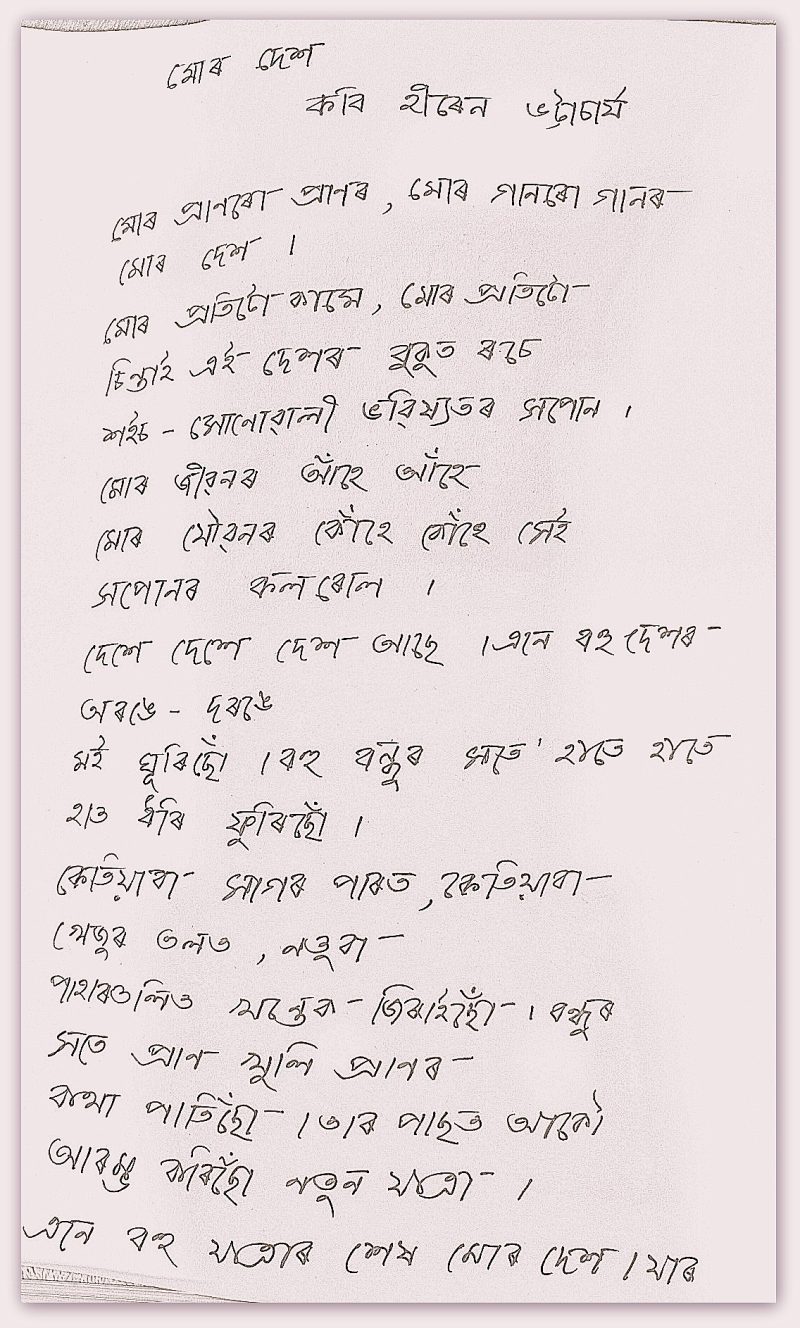 মোৰ দেশ
কবি হীৰেন ভট্টাচাৰ্য
মোৰ প্ৰাণৰো প্ৰাণৰ, মোৰ গানৰো গানৰ
মোৰ দেশ ।
মোৰ প্ৰতিটো কামে, মোৰ প্ৰতিটো
চিন্তাই এই দেশৰ বুকুত ৰচে
শইচ - সোণোৱালী ভৱিষ্যতৰ সপোন ।
মোৰ জীৱনৰ আঁহে আঁহে
মোৰ যৌৱনৰ কোঁহে কোঁহে সেই
সপোনৰ কলৰোল ।
দেশে দেশে দেশ আছে । এনে বহু দেশৰ
অৰঙে - দৰঙে
মই ঘূৰিছোঁ । বহু বন্ধুৰ সতে' হাতে হাতে
হাত ধৰি ফুৰিছোঁ ।
কেতিয়াবা সাগৰ পাৰত, কেতিয়াবা
খেজুৰ তলত, নতুবা
পাহাৰতলিত খন্তেক জিৰাইছোঁ । বন্ধুৰ
সতে প্ৰাণ খুলি প্ৰাণৰ
কথা পাতিছোঁ । তাৰ পাছত আকৌ
আৰম্ভ কৰিছোঁ নতুন যাত্ৰা ।
এনে বহু যাত্ৰাৰ শেষ মোৰ দেশ । যাৰ